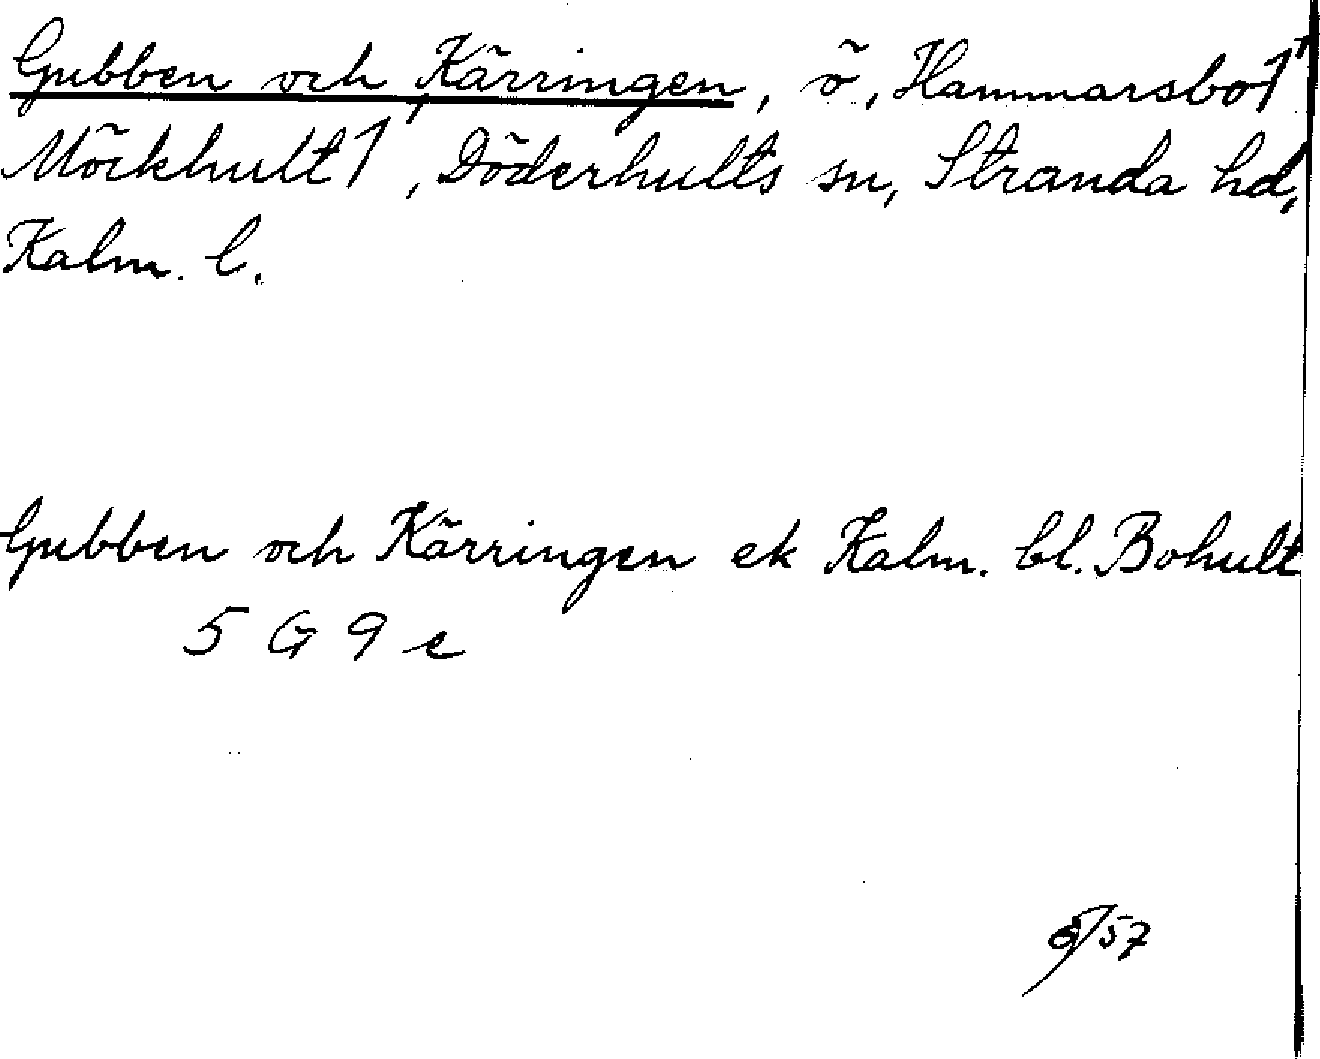 Gubben och Kärringen, ö, Hammarsbo 1 +
Möckhult 1, Döderhults sn, Stranda hd,
Kalm. l.
Gubben och Kärringen ek Kalm. bl. Bohult
5 G 9 e
/57